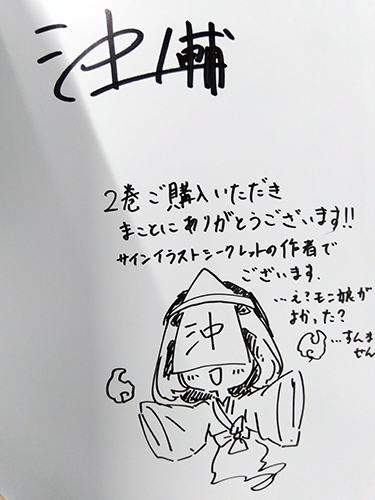 沖ノ輔
2巻ご購入いただき
まことにありがとうございます!!
サインイラストシークレットの作者で
ございます.
…え?モニ娘が
よかった?
…すんま
せん
沖